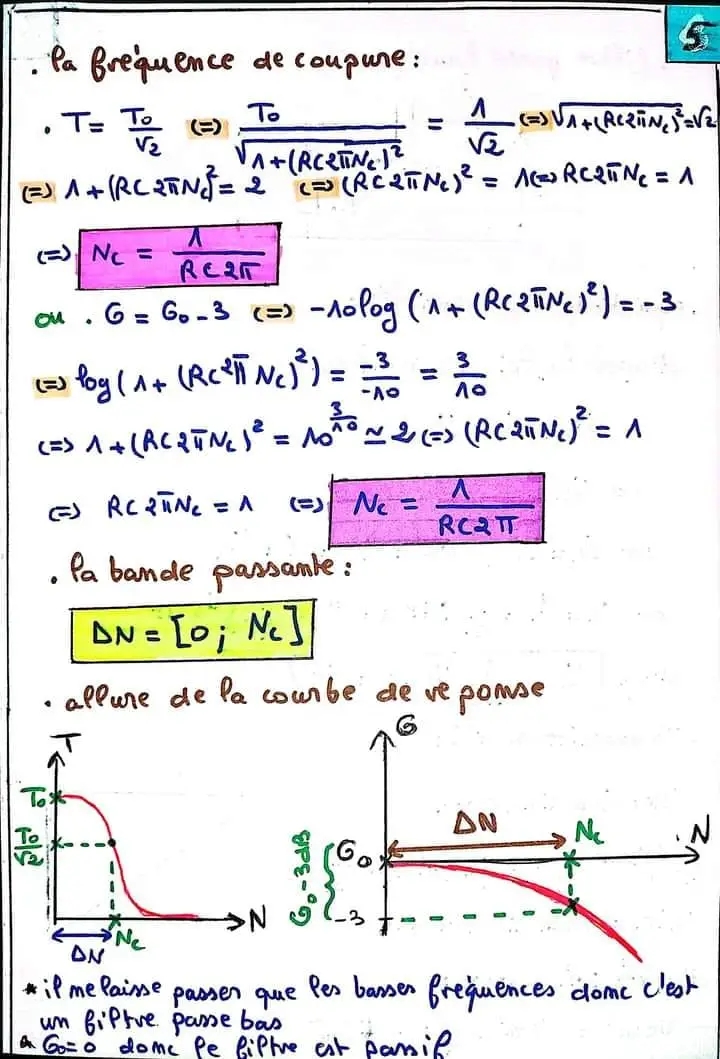 5
. la fréquence de coupure :
. T = T₀/√2 (=) T₀/√(1+(RC2πNc)²) = 1/√2 (=) √(1+(RC2πNc)²) = √2
(=) 1+(RC2πNc)² = 2 (=) (RC2πNc)² = 1 (=) RC2πNc = 1
(=) Nc = 1/RC2π
ou . G = G₀-3 (=) -10log(1+(RC2πNc)²) = -3
(=) log(1+(RC2πNc)²) = -3/-10 = 3/10
(=) 1+(RC2πNc)² = 10^(3/10) ≃ 2 (=) (RC2πNc)² = 1
(=) RC2πNc = 1 (=) Nc = 1/RC2π
. la bande passante :
ΔN = [0 ; Nc]
. allure de la courbe de reponse
T
T₀
T₀/√2
Nc
N
ΔN
G
ΔN
Nc
N
G₀
G₀-3dB
-3
* il ne laisse passer que les basses fréquences donc c'est
un filtre passe bas
G₀=0 donc le filtre est passif